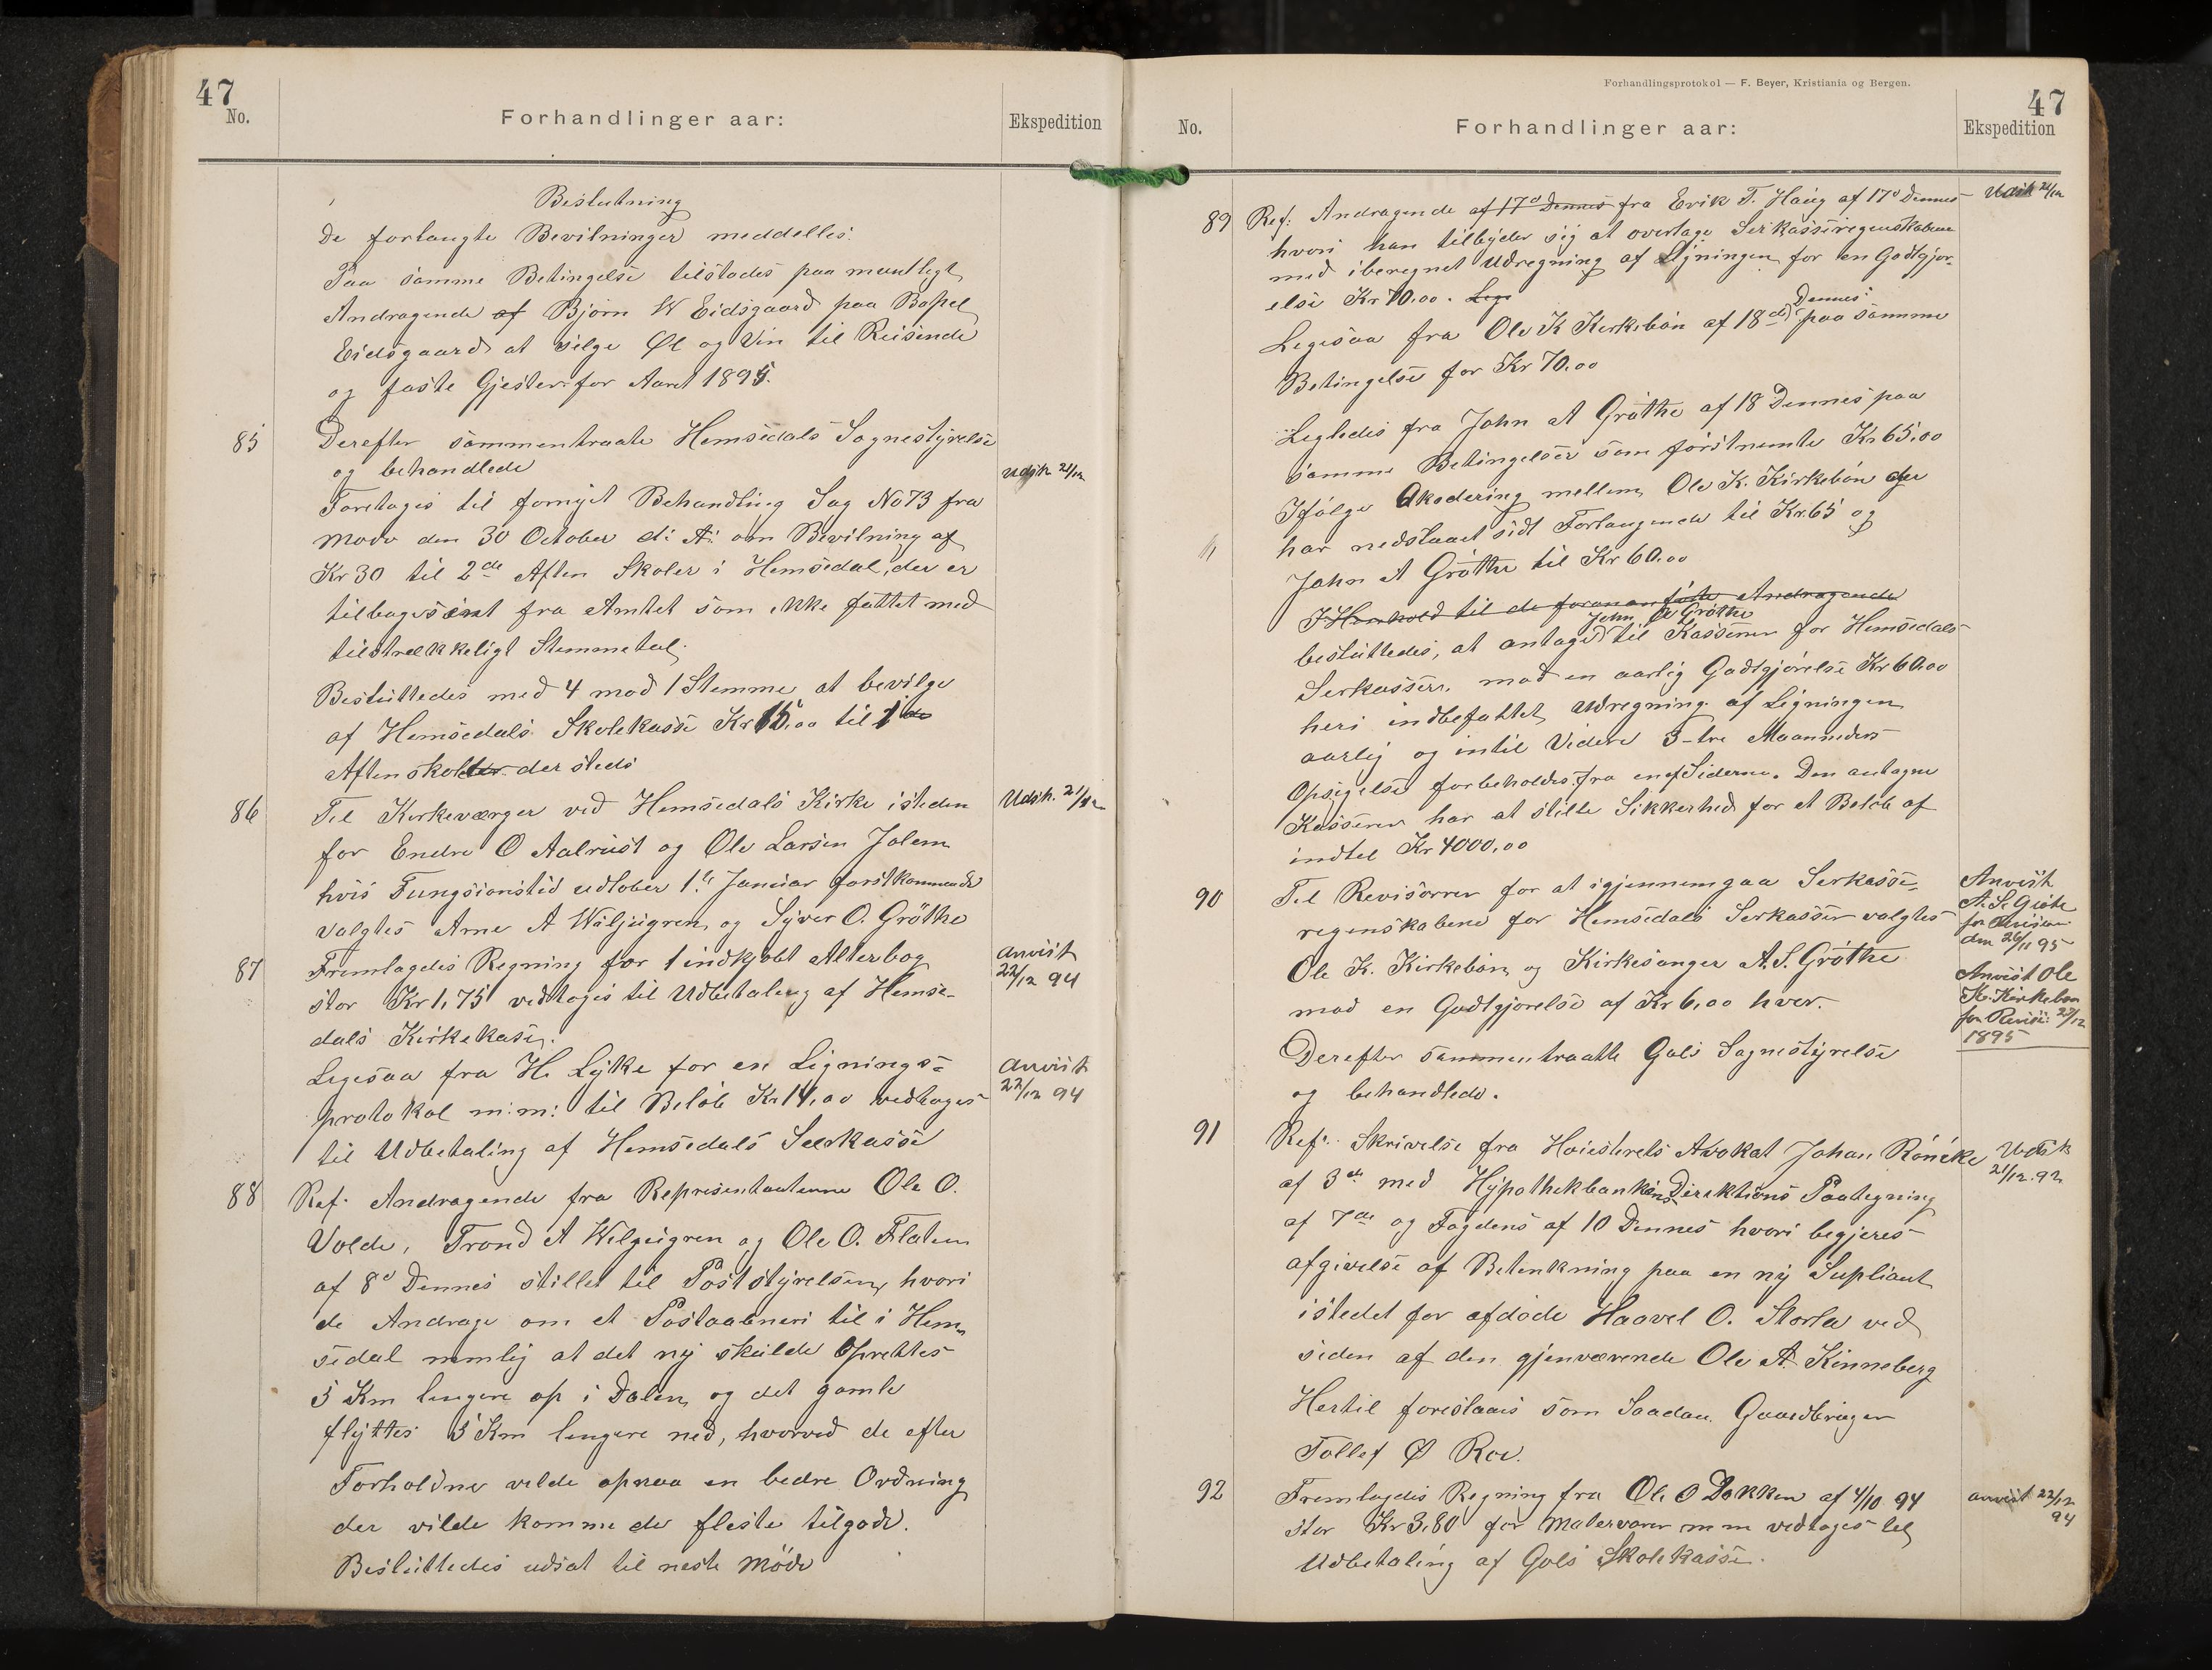 47
No.
Forhandlinger aar:
Ekspedition
Beslutning
De forlangte Bevilninger meddelles.
Paa samme Betingelse tilstodes paa muntligt
Andragende af Bjørn W Eidsgaard paa Bopel
Eidsgaard at selge Øl og Vin til Reisende
og faste Gjester for Aaret 1895.
85 Derefter sammentraate Hemsedals Sognestyrelse
og behandlede
Udsk 21/12
Foretoges til fornyet Behandling Sag No 73 fra
Møde den 30 October d: A: om Bevilning af
Kr 30 til 2de Aften Skoler i Hemsedal, der er
tilbagesent fra Amtet som ikke fattet med
tilstrækkeligt Stemmetal.
Besluttedes med 4 mod 1 Stemme at bevilge
af Hemsedals Skolekasse Kr 15,00 til 1
Aftenskole dersteds
86 Til Kirkeværger ved Hemsedals Kirke isteden
Udsk. 21/12
for Endre O Aalrust og Ole Larsen Jolem
hvis Fungsionstid udløber 1ste Januar førstkommende
valgtes Arne A Wøljugren og Syver O. Grøthe
87 Fremlagdes Regning for 1 indkjøbt Alterbog
Anvist
22/12 94
stor Kr 1,75 vedtoges til Udbetaling af Hemse-
dals Kirkekasse.
Legesaa fra H. Lyke for en Lignings=
Anvist
22/12 94
protokol m:m: til Beløb Kr 14,00 vedtoges
til Udbetaling af Hemsedals Serkasse
88 Ref. Andragende fra Representanterne Ole O.
Volde, Trond A Welgugren og Ole O. Flaten
af 8d Dennes stillet til Poststyrelsen, hvori
de Andrage om et Postaabneri til i Hem
sedal nemlig at det ny skulde Oprettes
5 Km lengere op i Dalen og det gamle
flyttes 5 Km lengere ned, hvorved de efter
Forholdne vilde opnaa en bedre Ordning
der vilde komme de fleste tilgode.
Besluttedes udsat til neste Møde
Forhandlingsprotokol — F. Beyer, Kristiania og Bergen.
47
No.
Forhandlinger aar:
Ekspedition
89 Ref: Andragende af 17d Dennes fra Erik T. Haug af 17d Dennes
Udsk 21/12
hvori han tilbyder sig at overtage Serkasseregenskabene
med iberegnet Udregning af Ligningen for en Godtgjør-
else Kr 70.00. Lege
Legesaa fra Ole K Kirkebøn af 18de Dennes paa samme
Betingelse for Kr 70.00
Legledes fra John A Grøthe af 18 Dennes paa
samme Betingelser som førstnemte Kr 65,00
Ifølge Akodering mellem Ole K. Kirkebøn der
har nedslaaet sidt Forlangende til Kr. 65 og
John A Grøthe til Kr 60.00
I Henhold til de forananførte Andragende
besluttedes, at antaget John A Grøthe til Kasserer for Hemsedals
Serkasser. mod en aarlig Godtgjørelse Kr 60.00
heri indbefattet Udregning af Ligningen
aarlig og intil Videre 3-tre Maanneders
Opsigelse forbeholdes fra en af Siderne. Den antagne
Kasserer har at stille Sikkerhed for et Beløb af
indtil Kr 4000,00
90 Til Revisorrer for at igjennemgaa Serkasse
regenskabene for Hemsedals Serkasser valgtes
Ole K. Kirkebøn og Kirkesanger A. S. Grøthe
mod en Godtgjørelse af Kr 6,00 hver.
Anvist
A. S. Grøthe
for Revision
den 26/11 95
Anvist Ole
K. Kirkebøn
for Revisi: 27/12
1895
Derefter sammentraatte Gols Sognestyrelse
og behandlede.
91 Ref: Skrivelse fra Høiesterets Avokat Johan Rónéke
Udsk
21/12.92
af 3de med Hypothekbankens Direktions Paategning
af 7de og Fogdens af 10 Dennes hvori begjeres
afgivelse af Betenkning paa en ny Supliant
istedet for afdøde Haavel O. Storla ved
siden af den gjenværende Ole A. Kinneberg
Hertil foreslaaes som Saadan Gaardbruger
Tollef Ø Roe.
92 Fremlagdes Regning fra Ole O Dokken af 4/10 94
anvist 22/12
94
stor Kr 3,80 for Malervarer m m vedtoges til
Udbetaling af Gols Skolekasse.